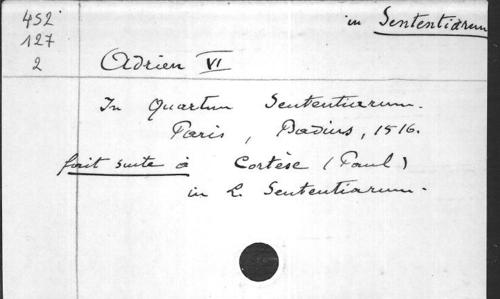 452
127
2
in Sententiarum
Adrien VI
In Quartum Sententiarum.
Paris, Badius, 1516.
fait suite à Cortèse (Paul)
in L. Sententiarum.